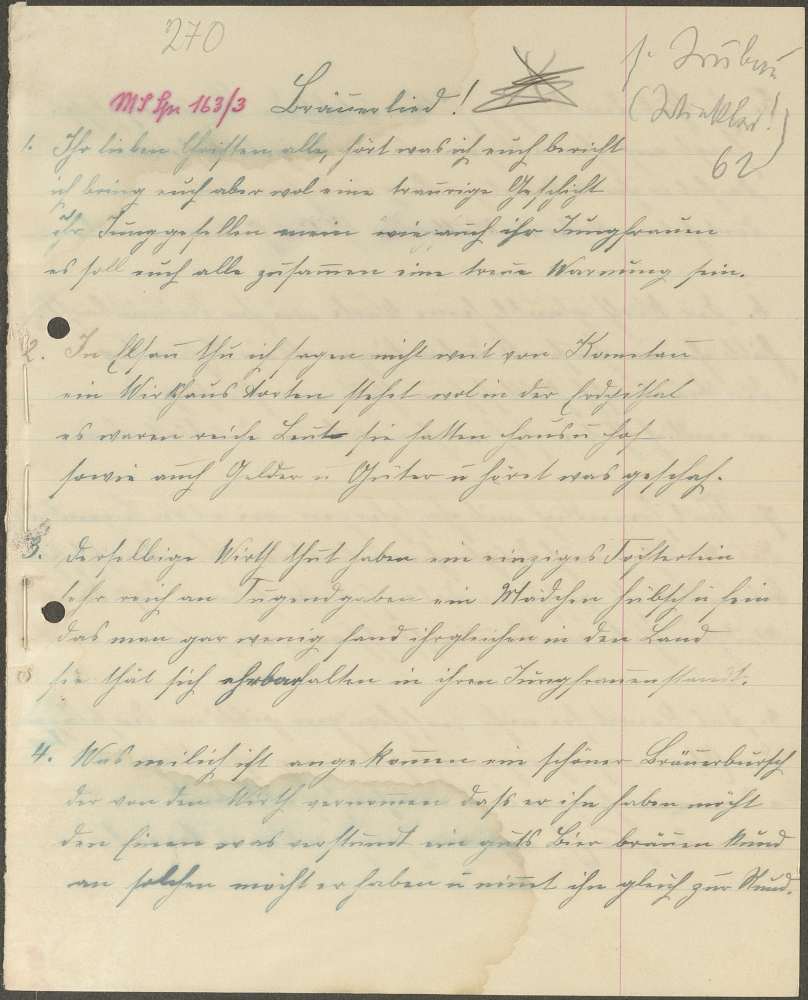 270
MS Spr 163/3 Bräuerlied!
(Winkler!)
62
1. Ihr lieben Christen alle, hört was ich euch bericht
ich bring euch aber wol eine traurige Geschicht
ihr Junggesellen mein wie auch ihr Jungfrauen
es soll euch alle zusam̄en eine treue Warnung sein.
2. In Elsau thu ich sagen nicht weit von
ein Wirthaus dorten stehet wol in der
es waren reiche Leut sie hatten Haus u Hof
sowie auch Gelder u Güter u höret was geschah.
3. Derselbige Wirth thut haben ein einziges Töchterlein
sehr reich an Tugendgaben ein Mädchen hübsch u fein
das man gar wenig fand ihrgleichen in den Land
sie thät sich ehrbar halten in ihren Jungfrauenstandt.
4. Was neilich ist angekom̄en ein schöner Bräuerbursch
der von den Wirth vernommen dass er ihn haben möcht
den Einen was verstundt ein guts Bier bräuen kund
an solchen möcht er haben u nim̄t ihn gleich zur Stund.